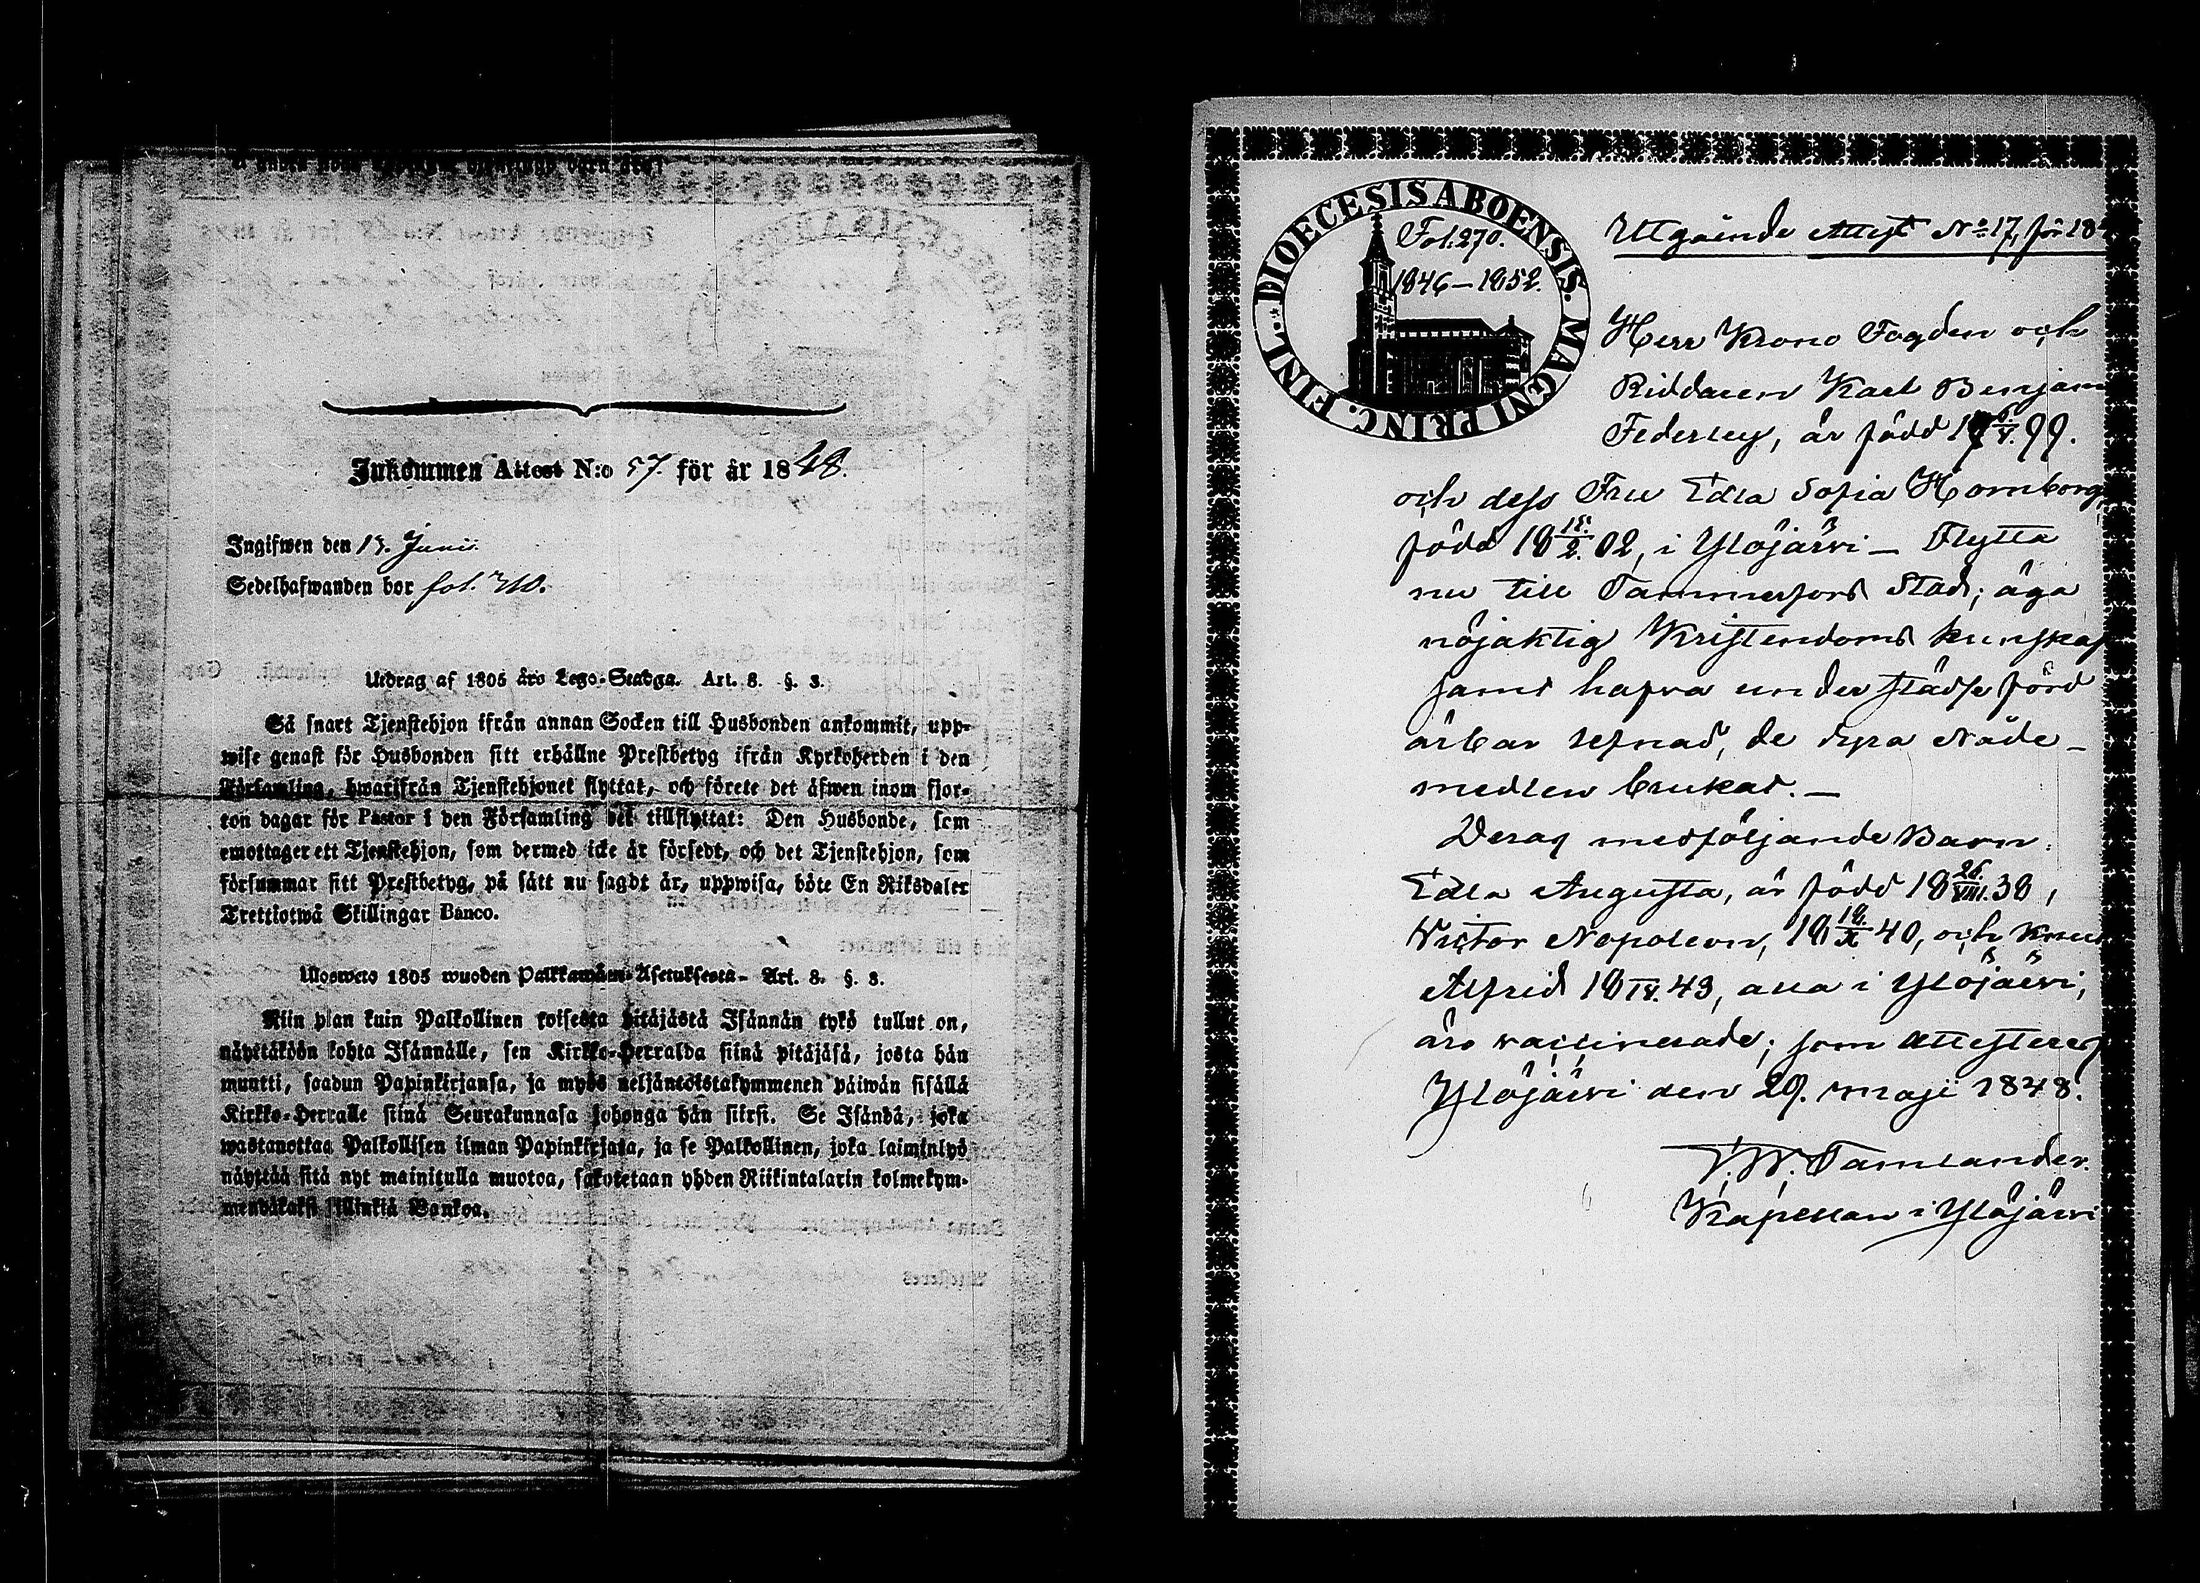 Inkommen Attest N:o 57. för år 1848.
Ingifwen den 15. Junii
Sedelhafwanden bor fol. 210.
Utdrag af 1805 års Lego-Stadga. Art. 8. §. 3.
Så snart Tjenstehjon ifrån annan Socken till Husbonden ankommit, upp-
wise genast för Husbonden sitt erhållne Prestbetyg ifrån Kyrkoherden i den
Församling, hwarifrån Tjenstehjonet flyttat, och förete det äfwen inom fjor-
ton dagar för Pastor i den Församling det tillflyttat: Den Husbonde, som
emottager ett Tjenstehjon, som dermed icke är försedt, och det Tjenstehjon, som
försummar sitt Prestbetyg, på sätt nu sagdt är, uppwisa, böte En Riksdaler
Trettiotwå Skillingar Banco.
Ulosweto 1805 wuoden Palkkawäen-Asetuksesta. Art. 8. §. 3.
Niin pian kuin Palkollinen toisesta pitäjästä Isännän tykö tullut on,
näyttäköön kohta Isännälle, sen Kirkko-Herralda siinä pitäjäsä, josta hän
muutti, saadun Papinkirjansa, ja myös neljäntoistakymmenen päiwän sisällä
Kirkko-Herralle siinä Seurakunnasa johonga hän siirsi. Se Isändä, joka
wastanottaa Palkollisen ilman Papinkirjata, ja se Palkollinen, joka laiminlyö
näyttää sitä nyt mainitulla muotoa, sakotetaan yhden Riikintalarin kolmekym-
mendäkaksi sillinkiä Bankoa.
DIOECESIS ABOENSIS. MAGNI PRINC. FINL.
Fol. 270.
1846–1852.
Utgående Attest No 17, för 184
Herr Krono Fogden och
Riddaren Karl Benjam
Federley, är född 17 6/V. 99.
och dess Fru Edla Sofia Homborg,
född 18 15./2. 02, i Ylöjärvi – Flytta
nu till Tammerfors Stad; äga
nöjaktig Kristendoms kunskap
samt hafva under städse förd
ärbar lefnad, de dyra Nåde–
medlen brukat. –
Deras medföljande Barn:
Edla Augusta, är född 18 26./VIII. 38,
Victor Napoleon, 18 18./X 40, och Knut
Alfrid 18 IV. 43, alla i Ylöjärvi,
äro vaccinerade; som attesteras
Ylöjärvi den 29. Maji 1848.
Tamlander.
Kapellan i Ylöjärvi